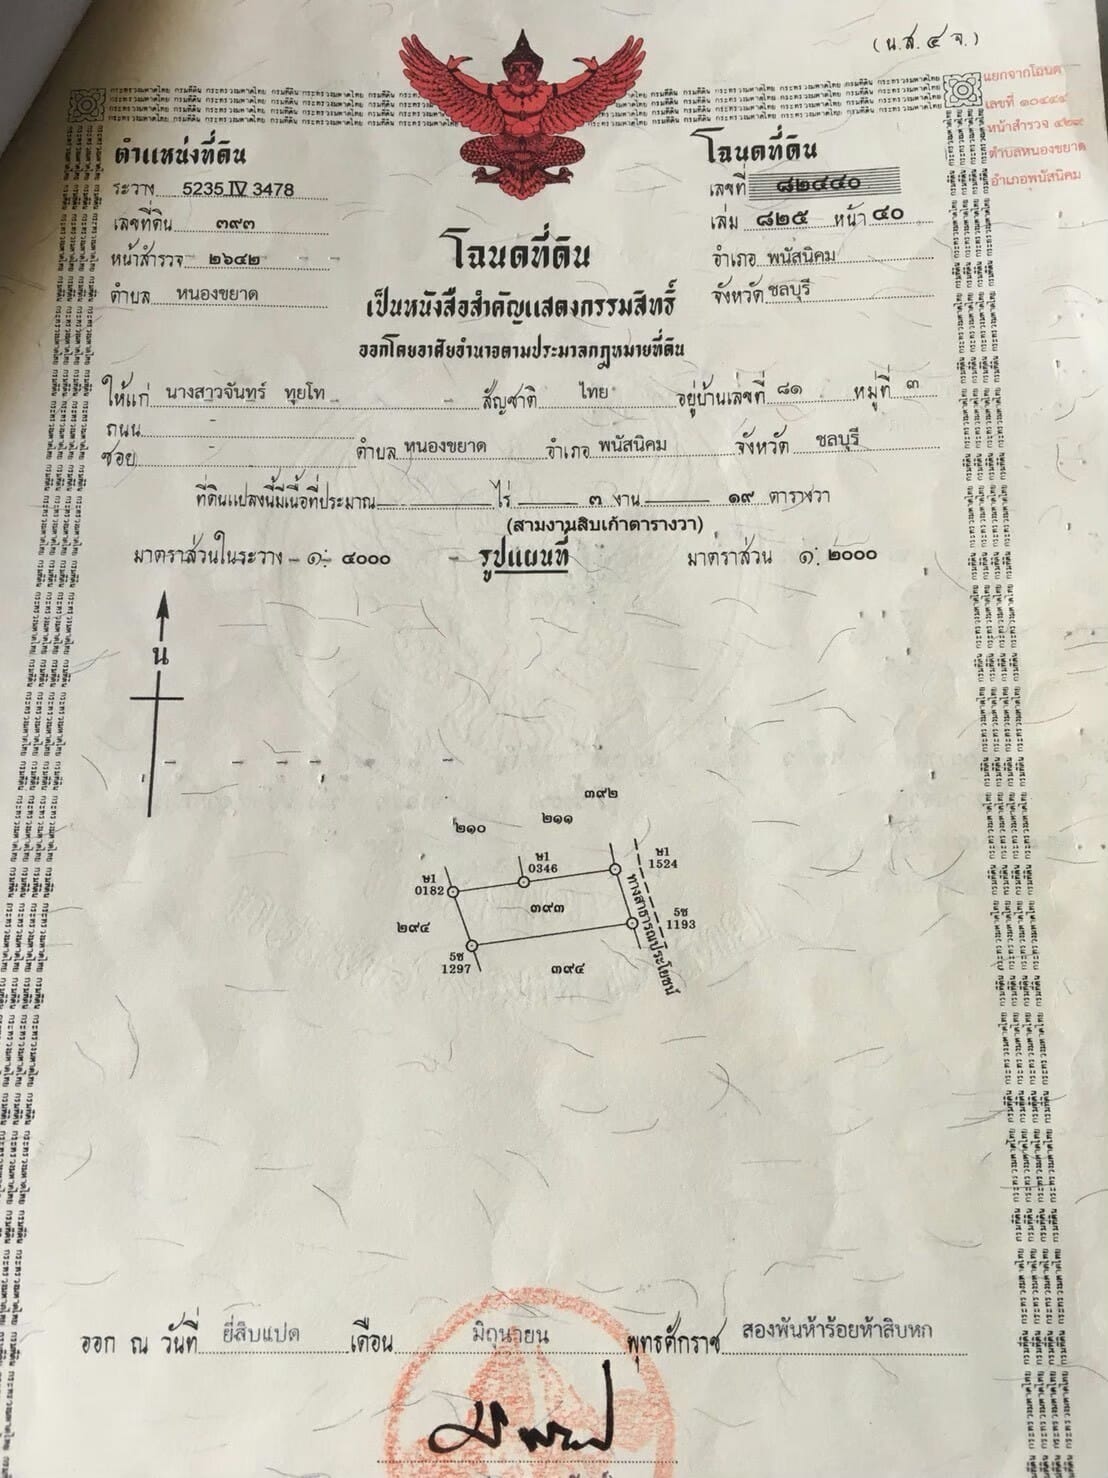 (น.ส.๔ จ.)
แยกจากโฉนด
เลขที่ ๑๐๔๔๙
หน้าสำรวจ ๔๒๙
ตำบลหนองขยาด
อำเภอพนัสนิคม
ตำแหน่งที่ดิน
ระวาง 5235 IV 3478
เลขที่ดิน ๓๙๓
หน้าสำรวจ ๒๖๔๒
ตำบล หนองขยาด
โฉนดที่ดิน
เลขที่ ๘๒๔๔๐
เล่ม ๘๒๕ หน้า ๔๐
อำเภอ พนัสนิคม
จังหวัด ชลบุรี
โฉนดที่ดิน
เป็นหนังสือสำคัญแสดงกรรมสิทธิ์
ออกโดยอาศัยอำนาจตามประมวลกฎหมายที่ดิน
ให้แก่ นางสาวจันทร์ ทุยโท สัญชาติ ไทย อยู่บ้านเลขที่ ๘๑ หมู่ที่ ๓
ถนน -
ซอย - ตำบล หนองขยาด อำเภอ พนัสนิคม จังหวัด ชลบุรี
ที่ดินแปลงนี้มีเนื้อที่ประมาณ - ไร่ ๓ งาน ๑๙ ตารางวา
(สามงานสิบเก้าตารางวา)
มาตราส่วนในระวาง ๑: ๔๐๐๐ รูปแผนที่ มาตราส่วน ๑: ๒๐๐๐
น
๓๙๒
๒๑๐ ๒๑๑
ษ1 0182
ษ1 0346
ษ1 1524
๓๙๓
๒๙๔
5ช 1193
5ช 1297
๓๙๔
ทางสาธารณประโยชน์
ออก ณ วันที่ ยี่สิบแปด เดือน มิถุนายน พุทธศักราช สองพันห้าร้อยห้าสิบหก